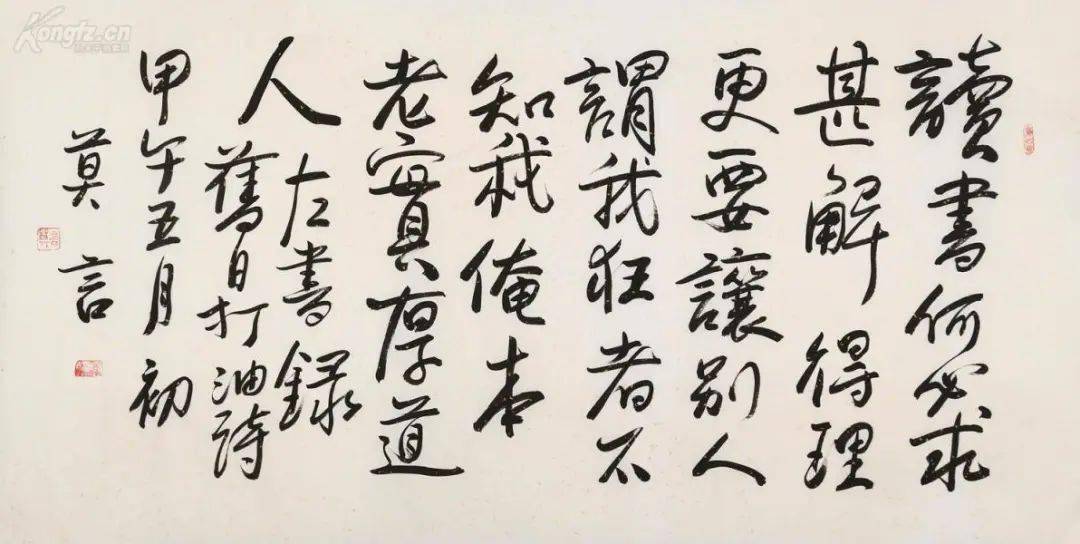 讀書何必求
甚解得理
更要讓別人
謂我狂者不
知我俺本
老實厚道
人左書錄
舊日打油詩
甲午五月初
莫言
Kongfz.cn